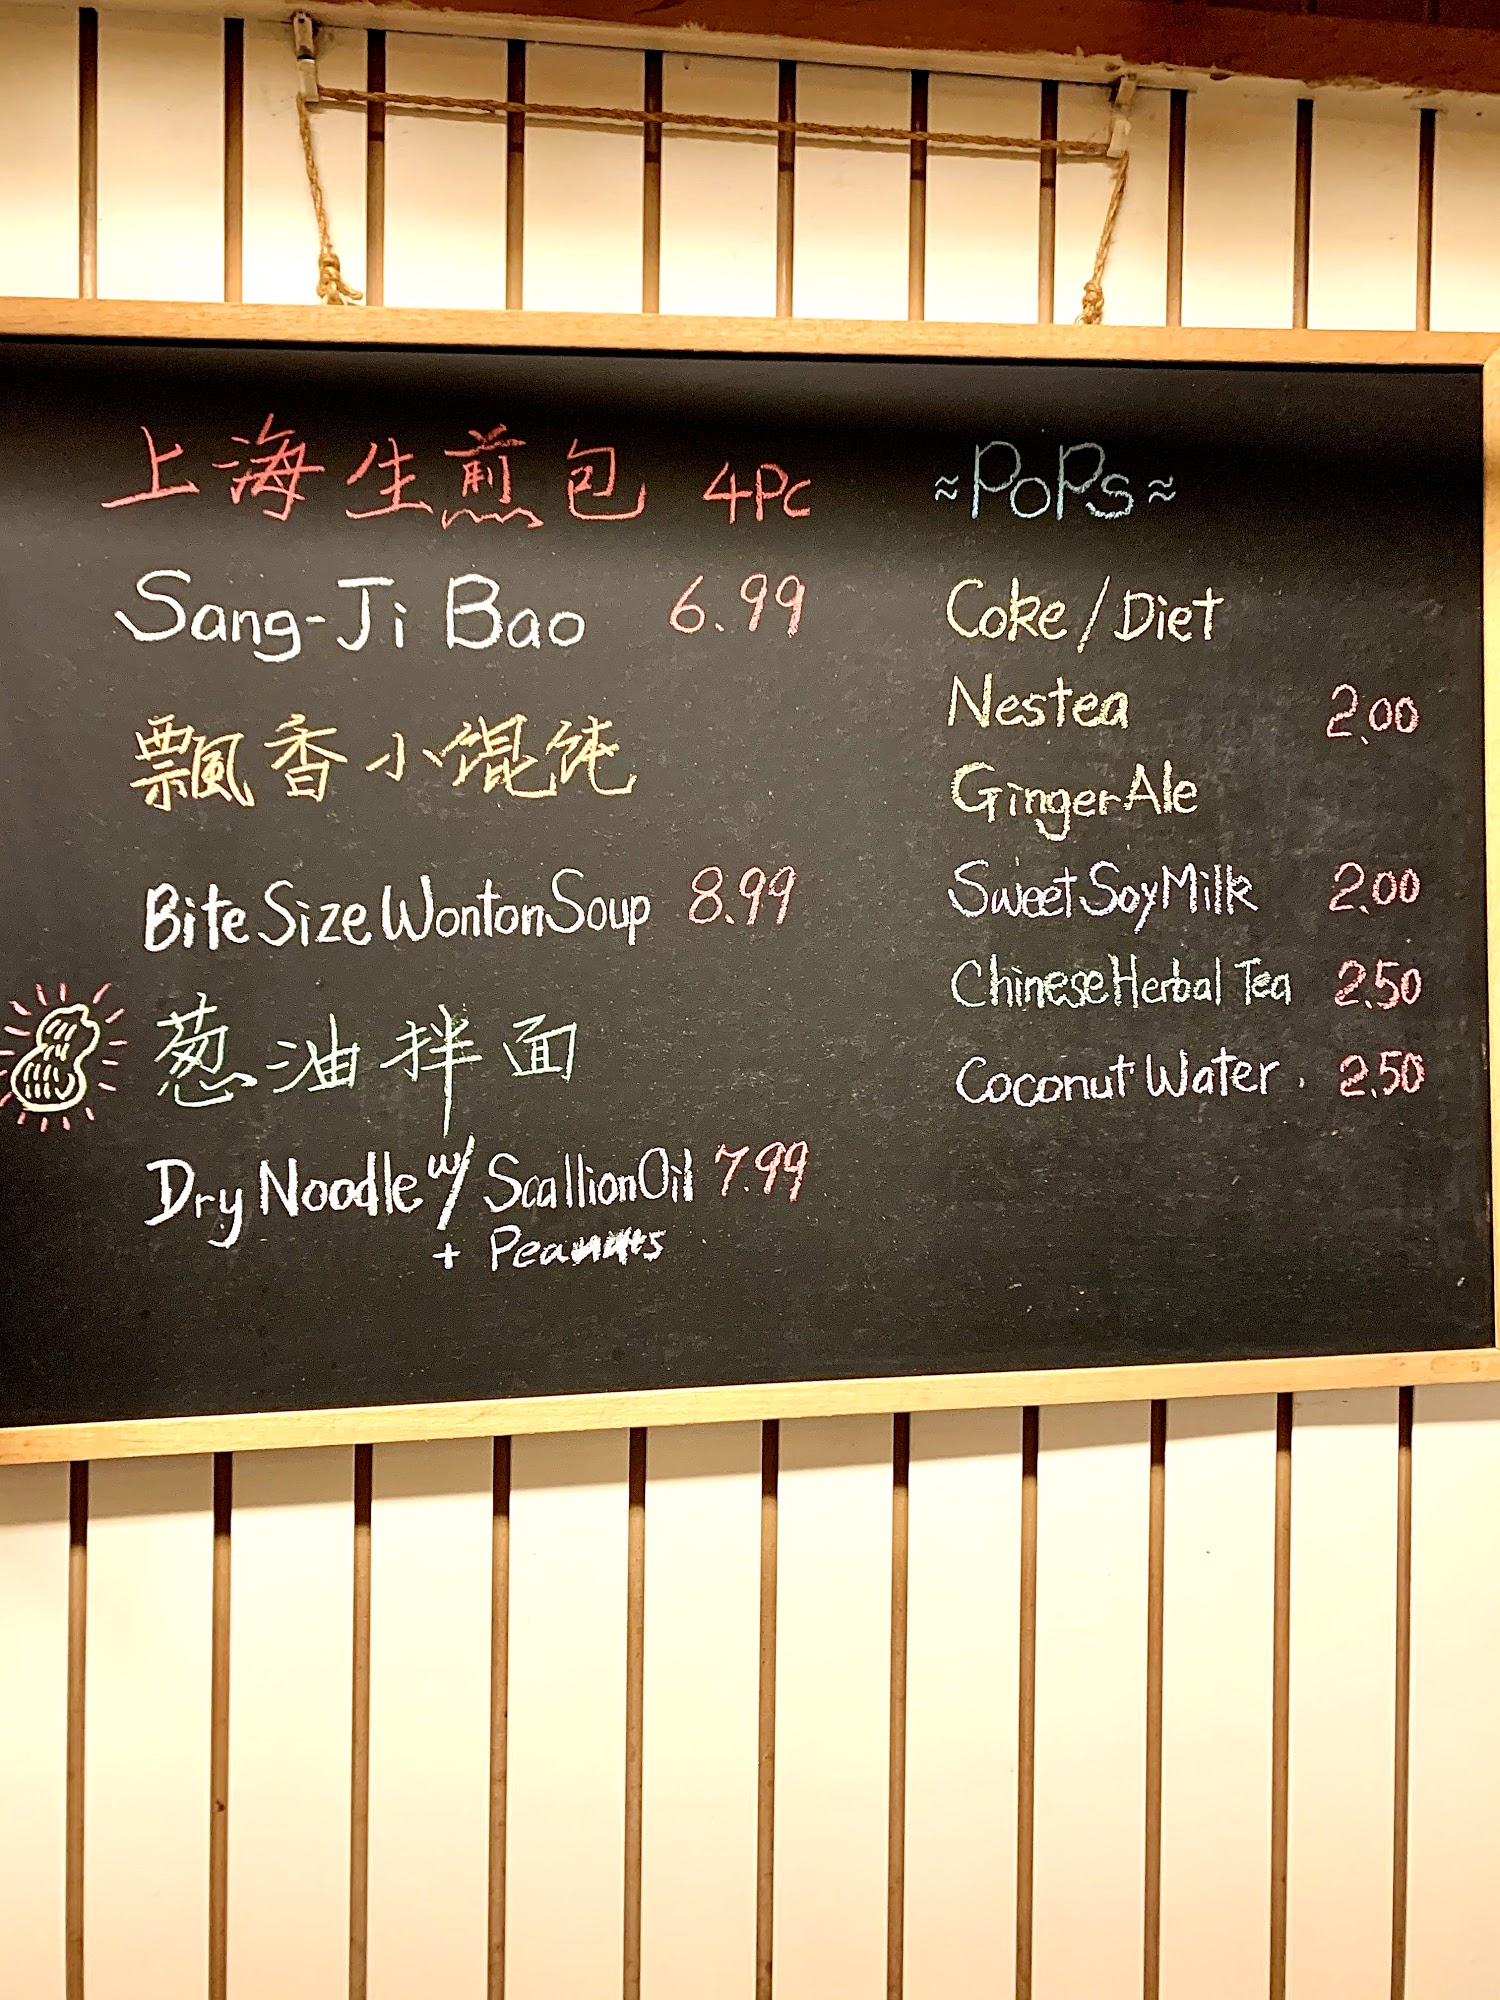 上海生煎包 4PC
Sang-Ji Bao 6.99
飘香小馄饨
Bite Size Wonton Soup 8.99
葱油拌面
Dry Noodle w/ Scallion Oil 7.99
+ Peanuts
≈POPs≈
Coke/Diet
Nestea 2.00
Ginger Ale
Sweet Soy Milk 2.00
Chinese Herbal Tea 2.50
Coconut Water. 2.50